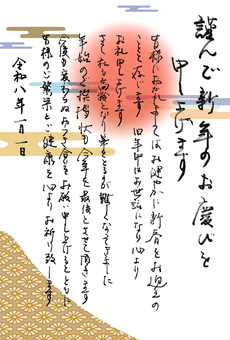 謹んで新年のお慶びを
申し上げます
皆様におかれましてはお健やかに新春をお迎えの
ことと存じます
旧年中はお世話になり心より
お礼申し上げます
さて 私も高齢となり筆をとるのが難しくなってきました
年始のご挨拶状も今年を最後とさせて頂きます
今後も変わらぬお つき合いをお願い申し上げるとともに
皆様のご繁栄とご健康を心よりお祈り致します
令和八年一月一日